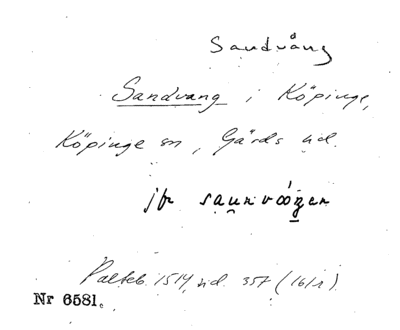 Sandvång
Sandvang i Köpinge,
Köpinge sn, Gärds hd.
jfr
Palteb. 1514, sid. 357 (16/1)
Nr 6581.